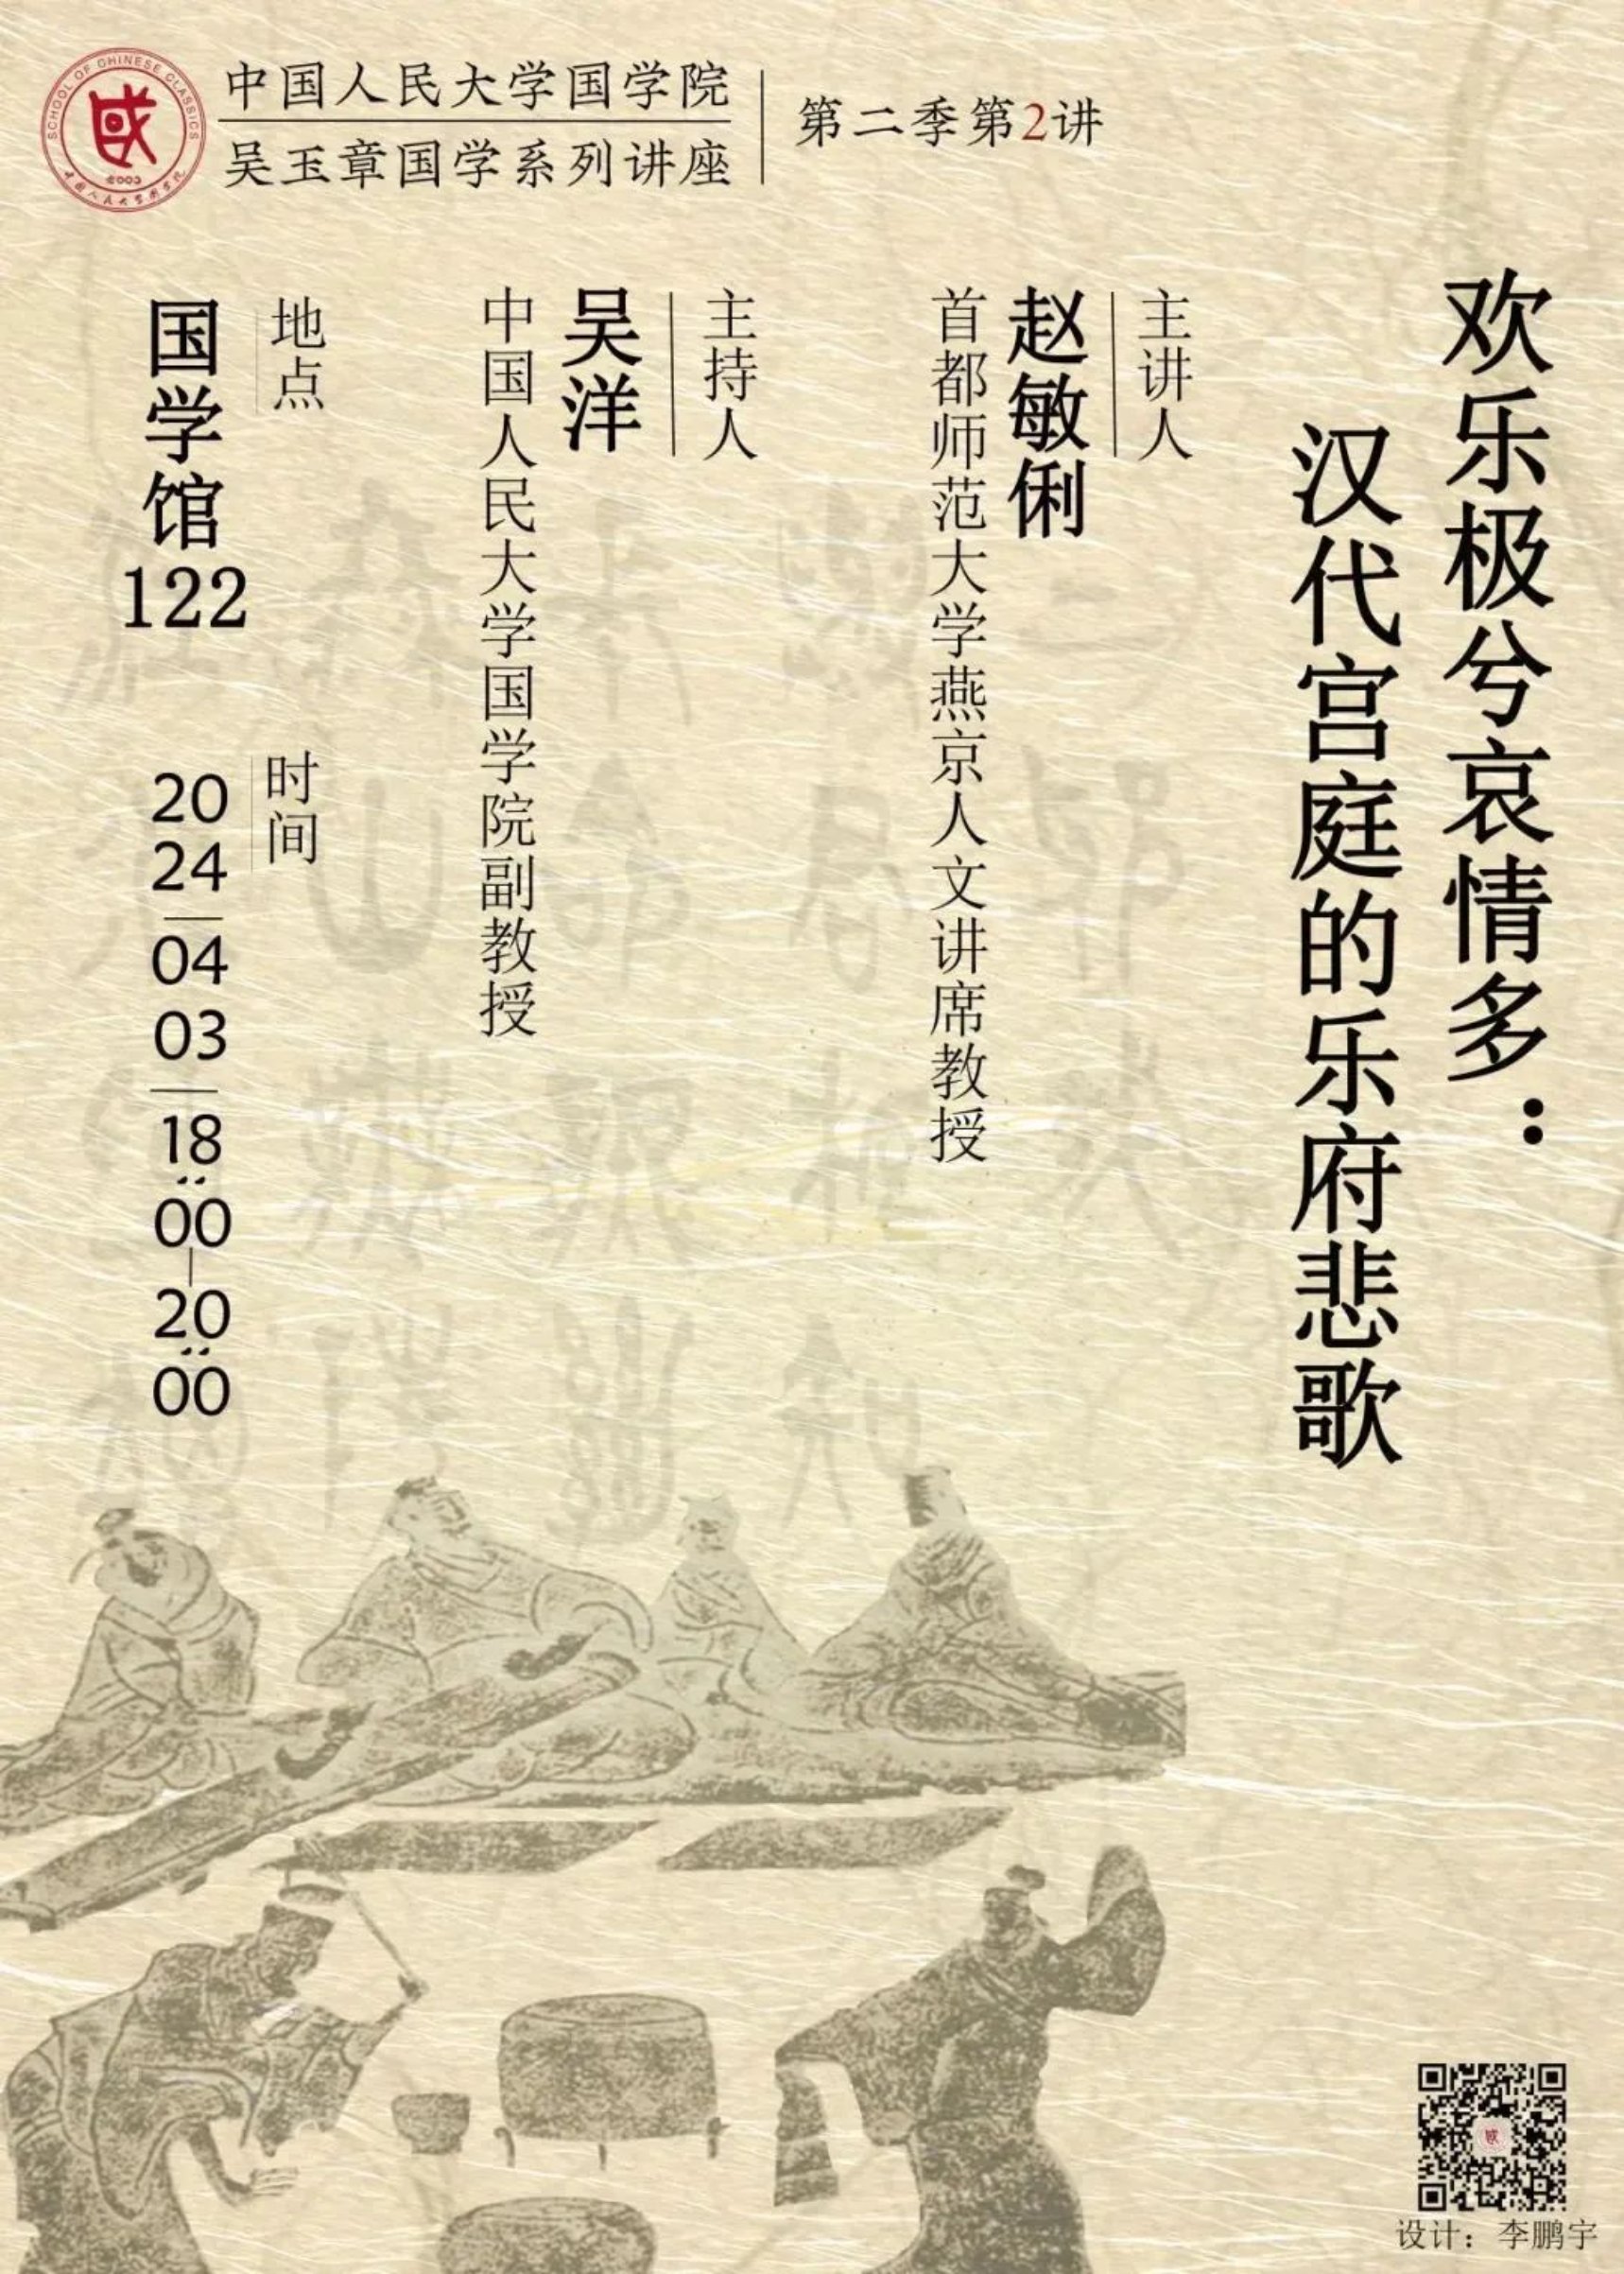 SCHOOL OF CHINESE CLASSICS
2005
中国人民大学国学院
中国人民大学国学院
吴玉章国学系列讲座
第二季第2讲
欢乐极兮哀情多：
汉代宫庭的乐府悲歌
主讲人
赵敏俐
首都师范大学燕京人文讲席教授
主持人
吴洋
中国人民大学国学院副教授
地点
国学馆122
时间
2024—0403—18:00—20:00
设计：李鹏宇